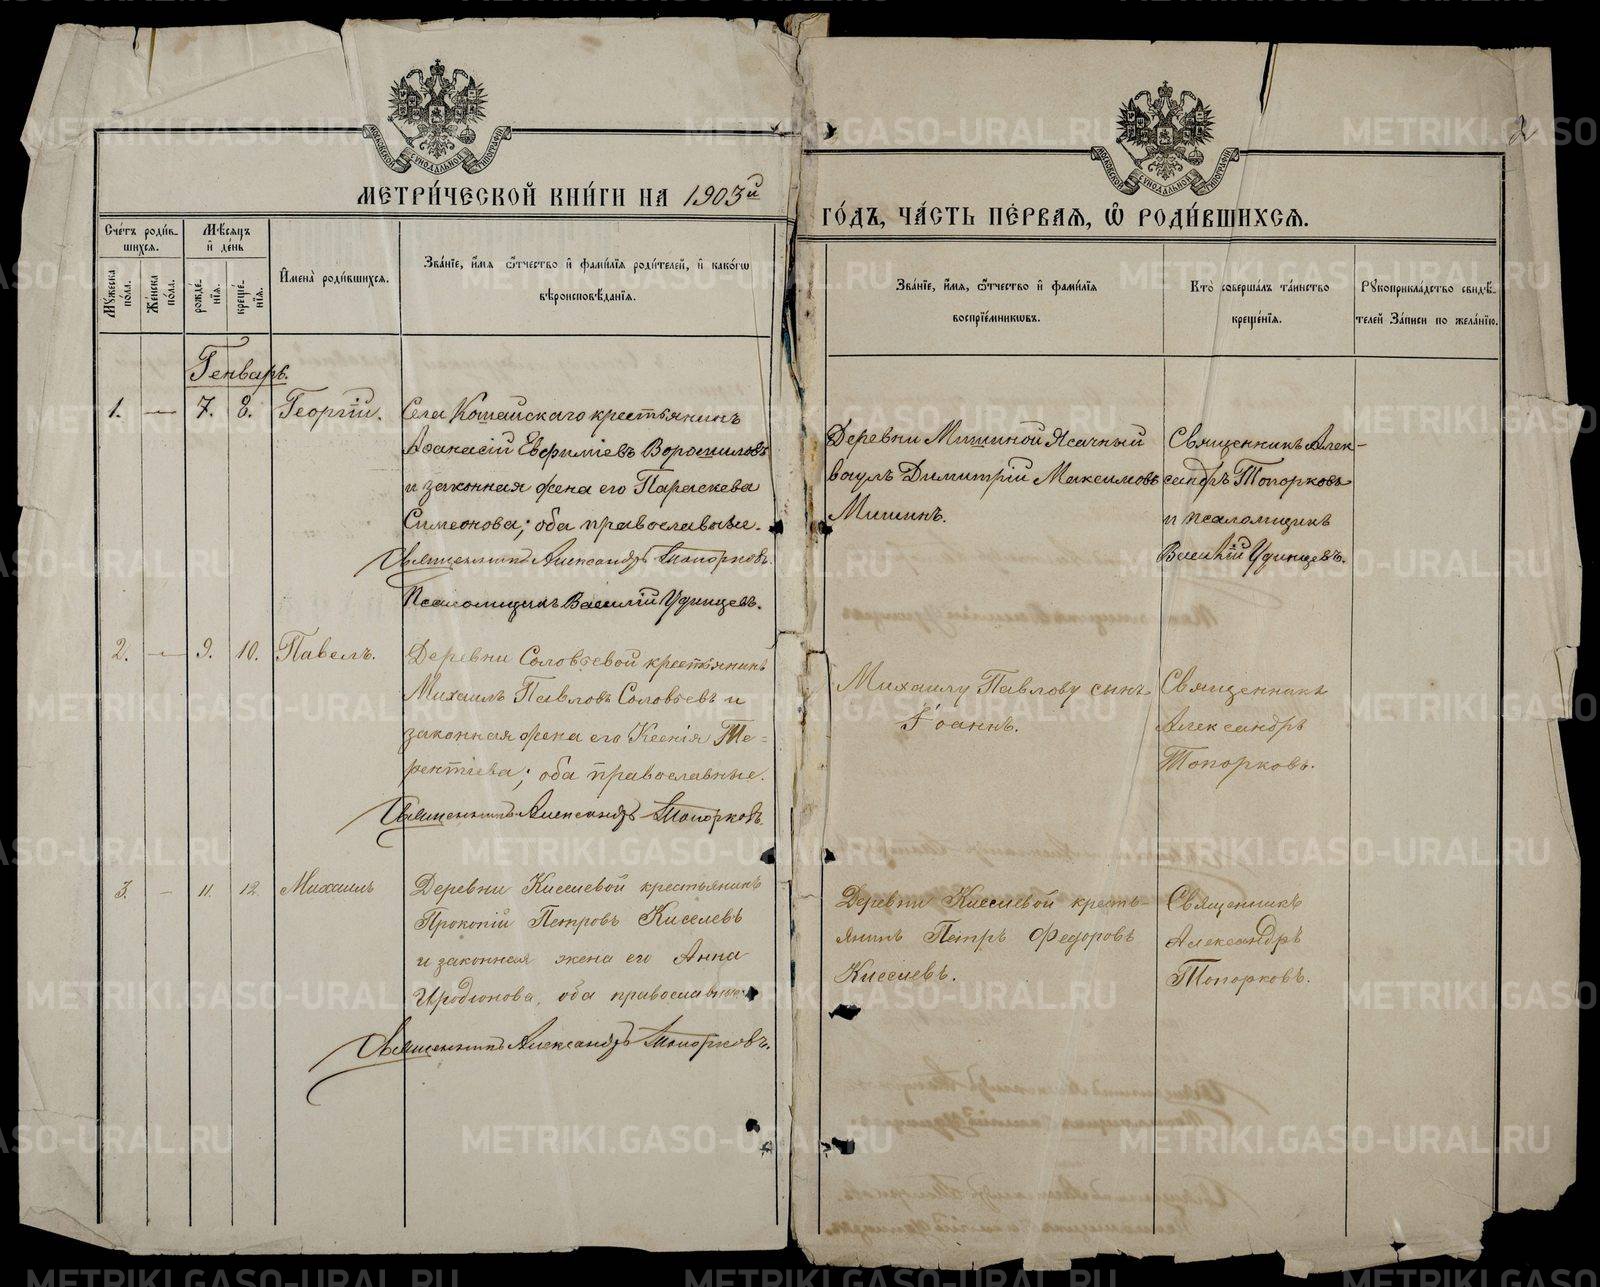 МЕТРИ́ЧЕСКОЙ КНИ́ГИ НА 1903й
ГО́ДЪ, ЧА́СТЬ ПЕ́РВАЯ, Ѡ РОДИ́ВШИХСѦ.
МОСКОВСКОЙ СѴНОДАЛЬНОЙ ТИПОГРАФІИ
МОСКОВСКОЙ СѴНОДАЛЬНОЙ ТИПОГРАФІИ
2
Сче́тъ роди́в-
шихсѧ.
Мꙋжеска по́ла.
Женска по́ла.
Мѣ́сѧцъ
и҆ де́нь
рожде́нїѧ.
креще́нїѧ.
И҆мена̀ роди́вшихсѧ.
Зва́нїе, и҆́мѧ ѻ҆́тчество и҆ фами́лїѧ роди́телей, и҆ како́гѡ
вѣроисповѣ́данїѧ.
Зва́нїе, и҆́мѧ, ѻ҆́тчество и҆ фами́лїѧ
воспрїе́мникѡвъ.
Кто̀ соверша́лъ та́инство
креще́нїѧ.
Рꙋкоприкла́дство свидѣ́-
телей За́писи по жела́нїю.
Генварь.
1. — 7. 8. Георгій.
Села Кошайскаго крестьянинъ
Аѳанасій Евфиміевъ Ворошиловъ
и законная жена его Параскева
Симеонова; оба православные.
Священникъ Александръ Топорковъ.
Псаломщикъ Василій Удинцевъ.
Деревни Мишиной Ясачный
ваулъ Димитрій Максимовъ
Мишинъ.
Священникъ Алек-
сандръ Топорковъ
и псаломщикъ
Василій Удинцевъ.
2. — 9. 10. Павелъ.
Деревни Соловьевой крестьянинъ
Михаилъ Павловъ Соловьевъ и
законная жена его Ксенія Те-
рентіева; оба православные.
Священникъ Александръ Топорковъ.
Михаилу Павлову сынъ
Іоаннъ.
Священникъ
Александръ
Топорковъ.
3. — 11. 12. Михаилъ
Деревни Киселевой крестьянинъ
Прокопій Петровъ Киселевъ
и законная жена его Анна
Иродіонова, оба православные.
Священникъ Александръ Топорковъ.
Деревни Киселевой кресть-
янинъ Петръ Федоровъ
Киселевъ.
Священникъ
Александръ
Топорковъ.
METRIKI.GASO-URAL.RU